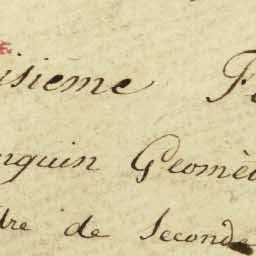 isieme Fe
nguin Geomè
dre de Seconde